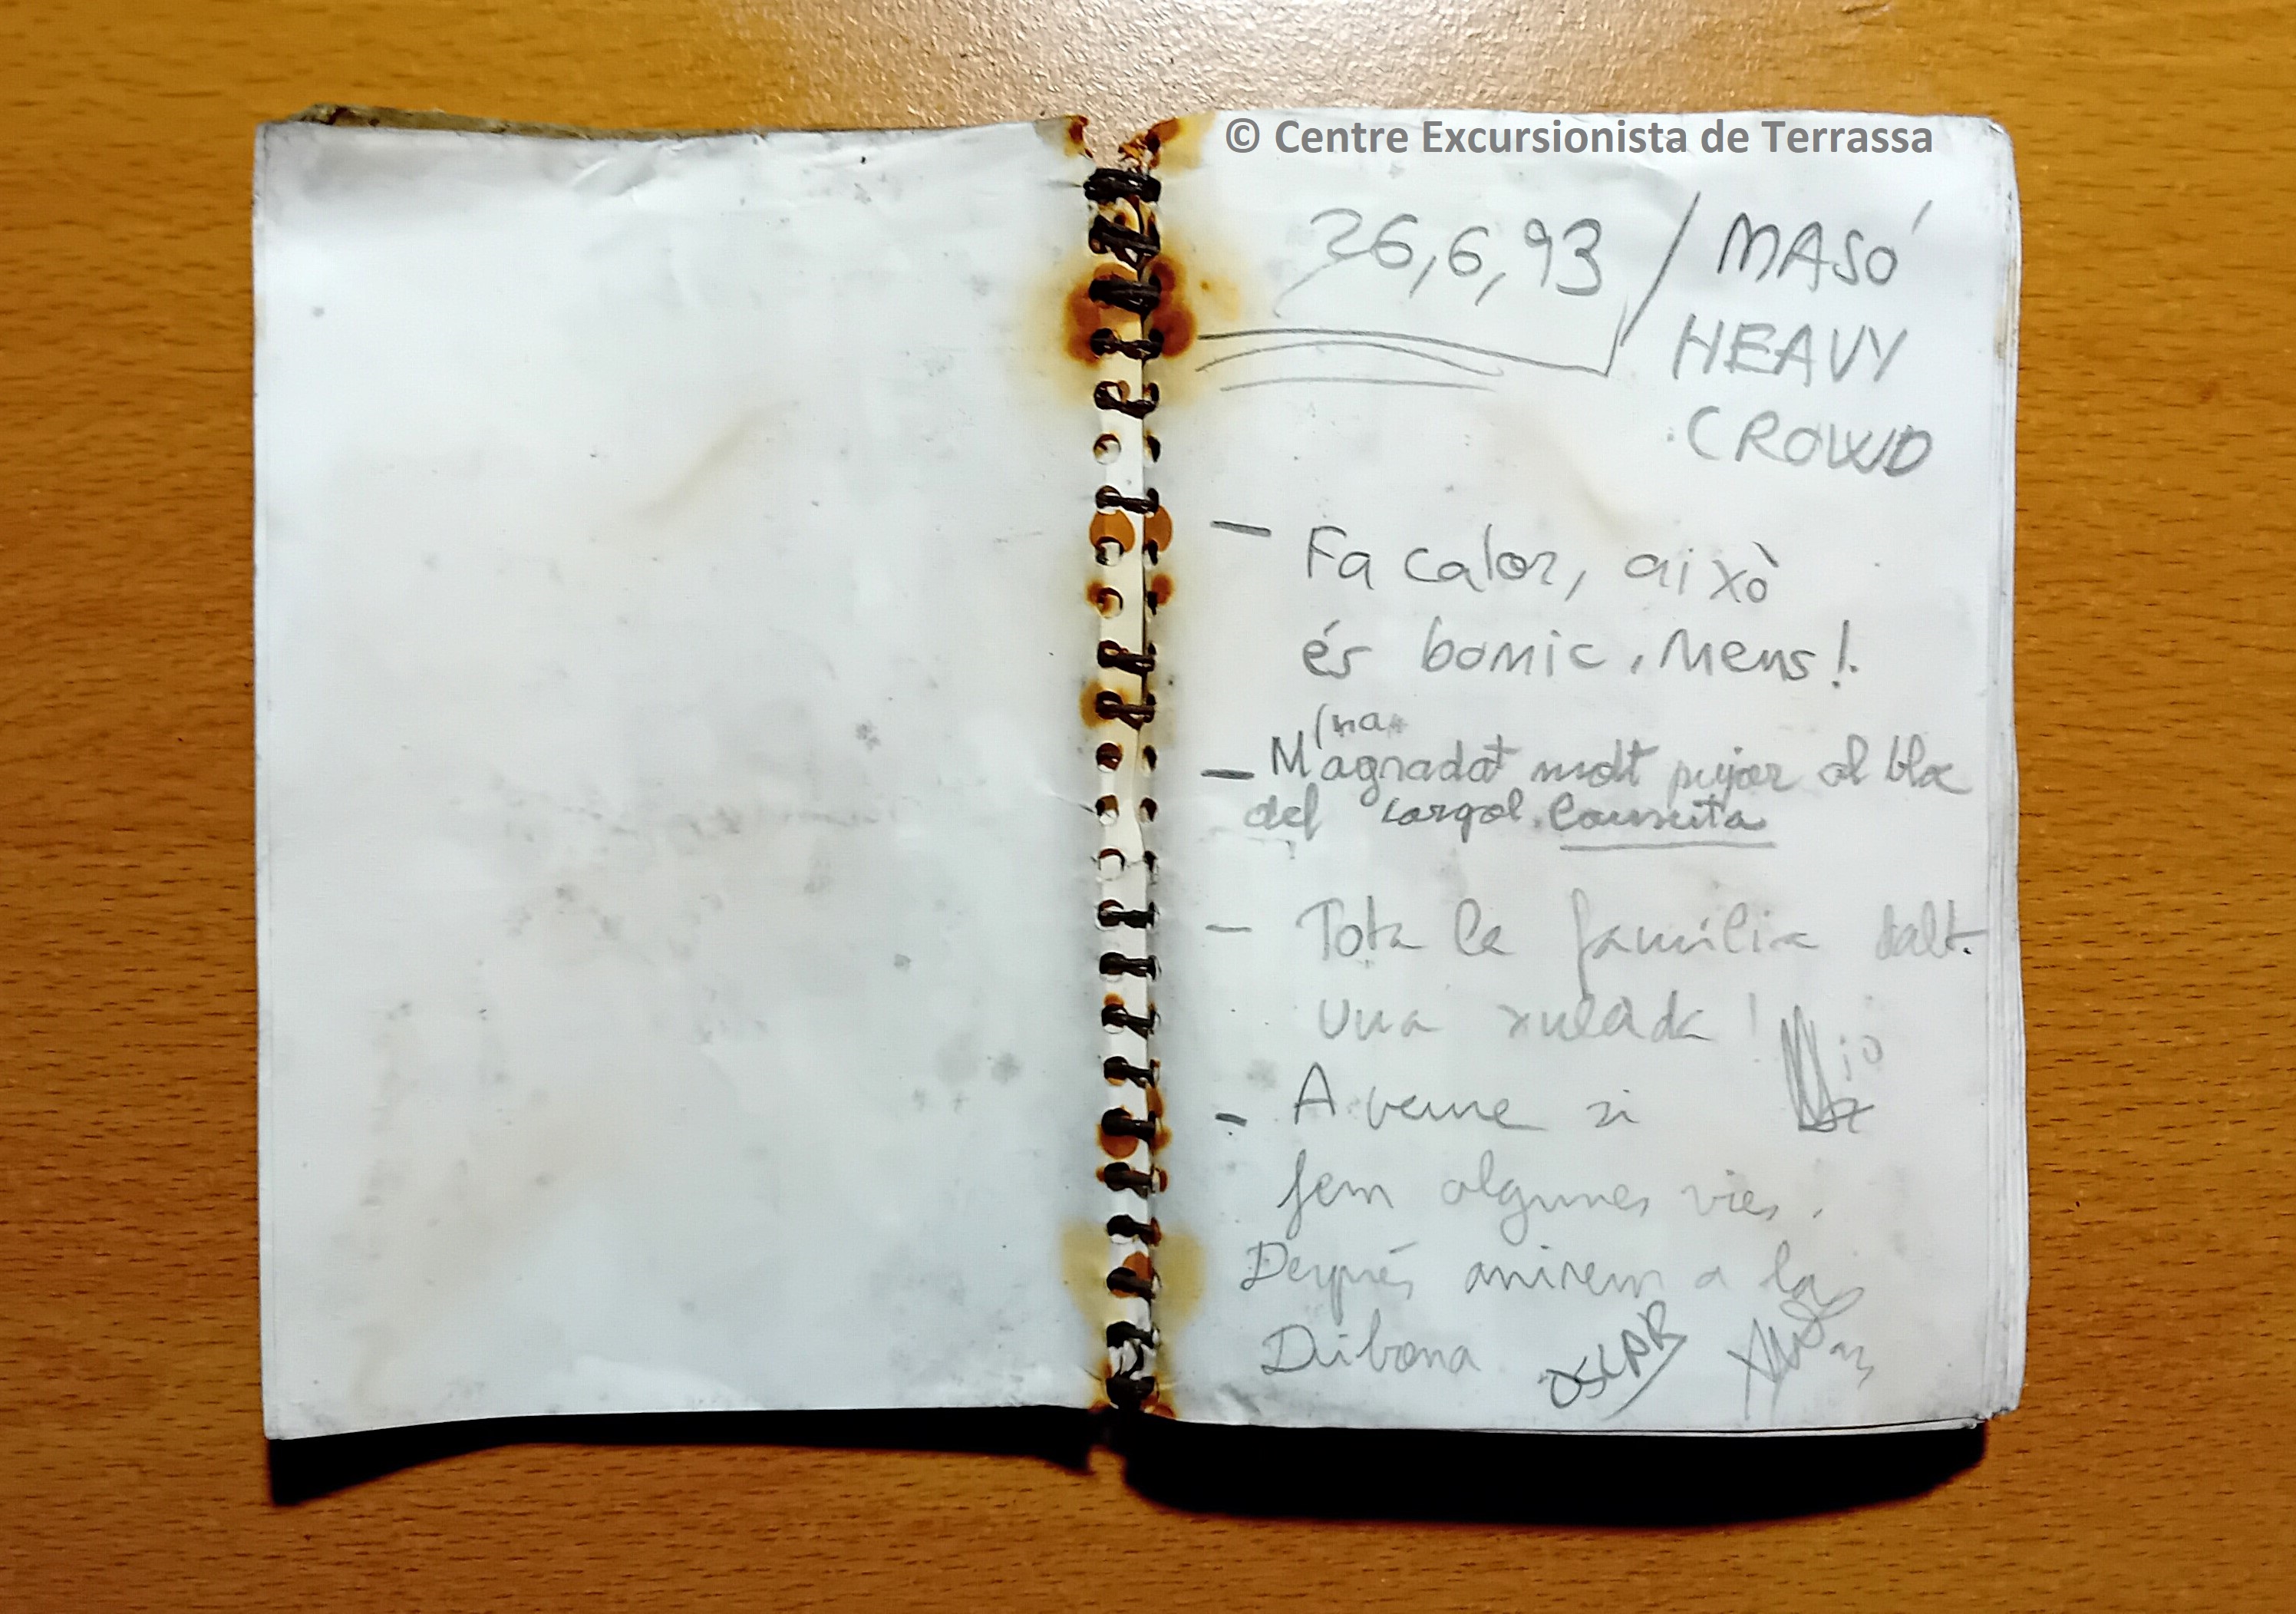 © Centre Excursionista de Terrassa
26,6,93 / MASÓ
HEAVY
CROWD
— Fa calor, això
és bonic. Mens!
(ha
— M'agradat molt pujar al bloc
del cargol.
— Tota la família dalt.
Una xulada!
- A veure si
fem algunes vies.
Després anirem a la
Dibona OSCAR